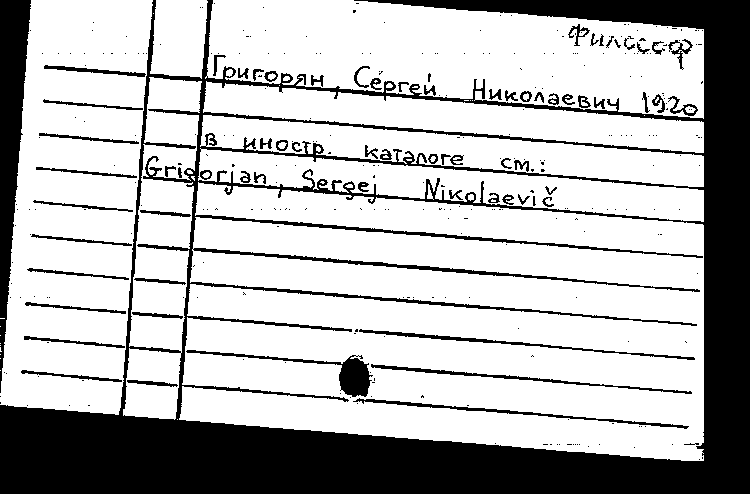 Философ
Григорян, Сергей Николаевич 1920
в иностр. каталоге см.:
Grigorjan, Sergej Nikolaevič